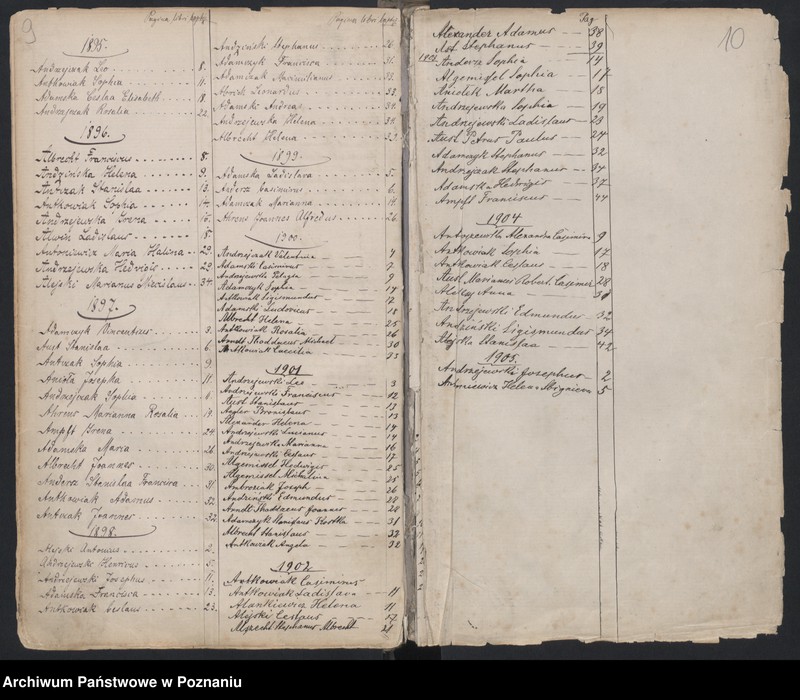 9
Pagina libri baptiz.
1895.
Andrzejczak Leo 8.
Antkowiak Sophia 11.
Adamska Ceslaa Elisabeth 18.
Andrzejczak Rosalia 22.
1896.
Albrecht Franciscus 8.
Andzińska Helena 9.
Antczak Stanislaa 13.
Antkowiak Sophia 14.
Andrzejewska Irena 16.
Alwin Ladislaus 18.
Antoniewicz Maria Halina 23.
Andrzejewska Hedvigis 29.
Alejski Marianus Mecislaus 34.
1897.
Adamczyk Vincentius 3.
Aust Stanislaa 6.
Antczak Sophia 9.
Anioła Josepha 11.
Andrzejczak Sophia 6.
Ahrens Marianna Rosalia 19.
Ampft Irena 24.
Adamska Maria 28.
Albrecht Joannes 30.
Anders Stanislaa Francisca 31.
Antkowiak Adamus 32.
Antczak Joannes 32.
1898.
Alejski Antonius 2.
Andrzejewski Henricus 5.
Andrzejewski Josephus 11.
Adamska Francisca 13.
Antkowiak Ceslaus 23.
Pagina libri baptiz.
Andziński Stephanus 26.
Adamczyk Francisca 31.
Adamczak Maximilianus 33.
Abrich Leonardus 38.
Adamski Andreas 38.
Andrzejewska Helena 38.
Albrecht Helena 39.
1899.
Adamska Ladislava 5.
Anders Casimirus 6.
Adamczak Marianna 14.
Ahrens Joannes Alfredus 26.
1900.
Andrzejczak Valentina 4
Adamski Casimirus 7
Andrzejewska Pelagia 9
Adamczyk Sophia 17
Antkowiak Sigismundus 17
Adamski Ludovicus 18
Albrecht Helena 25
Antkowiak Rosalia 26
Arndt Thaddaeus Michael 30
Antkowiak Caecilia 33
1901
Andrzejewski Leo 3
Andrzejewski Franciscus 12
Aust Stanislaus 13
Aegler Bronislaus 13
Alexander Helena 14
Andrzejewski Lucianus 14
Andrzejewska Marianna 16
Andrzejewski Ceslaus 17
Algemissel Hedwigis 25
Algemissel Michalina 25
Ambroziak Joseph 26
Andziński Edmundus 28
Arndt Thaddaeus Joannes 28
Adamczyk Stanislaus Kostka 31
Albrecht Stanislaus 32
Antkowiak Angela 32
1902
Antkowiak Casimirus
Antkowiak Ladislava 11
Atankiewicz Helena 11
Alejski Ceslaus 17
Albrecht Stephanus Albrecht 21
10
Pag
Alexander Adamus 38
Ast Stephanus 39
1903 Anders Sophia 14
Algemissel Sophia 17
Aniolek Martha 18
Andrzejewska Sophia 19
Andrzejewski Ladislaus 23
Aust Petrus Paulus 24
Adamczyk Stephanus 32
Andrzejczak Stephania 34
Adamska Hedwigis 37
Ampft Franciscus 44
1904
Antoszewska Alexandra Casimira 9
Antkowiak Sophia 17
Antkowiak Ceslaus 18
Aust Marianus Robert. Casimir 28
Alejska Anna 31
Andrzejewski Edmundus 32
Andzeński Sigismundus 34
Alejska Stanislaa 42
1905
Andrzejewski Josephus 2
Antoniewicz Helena Sbignieva 5
Archiwum Państwowe w Poznaniu